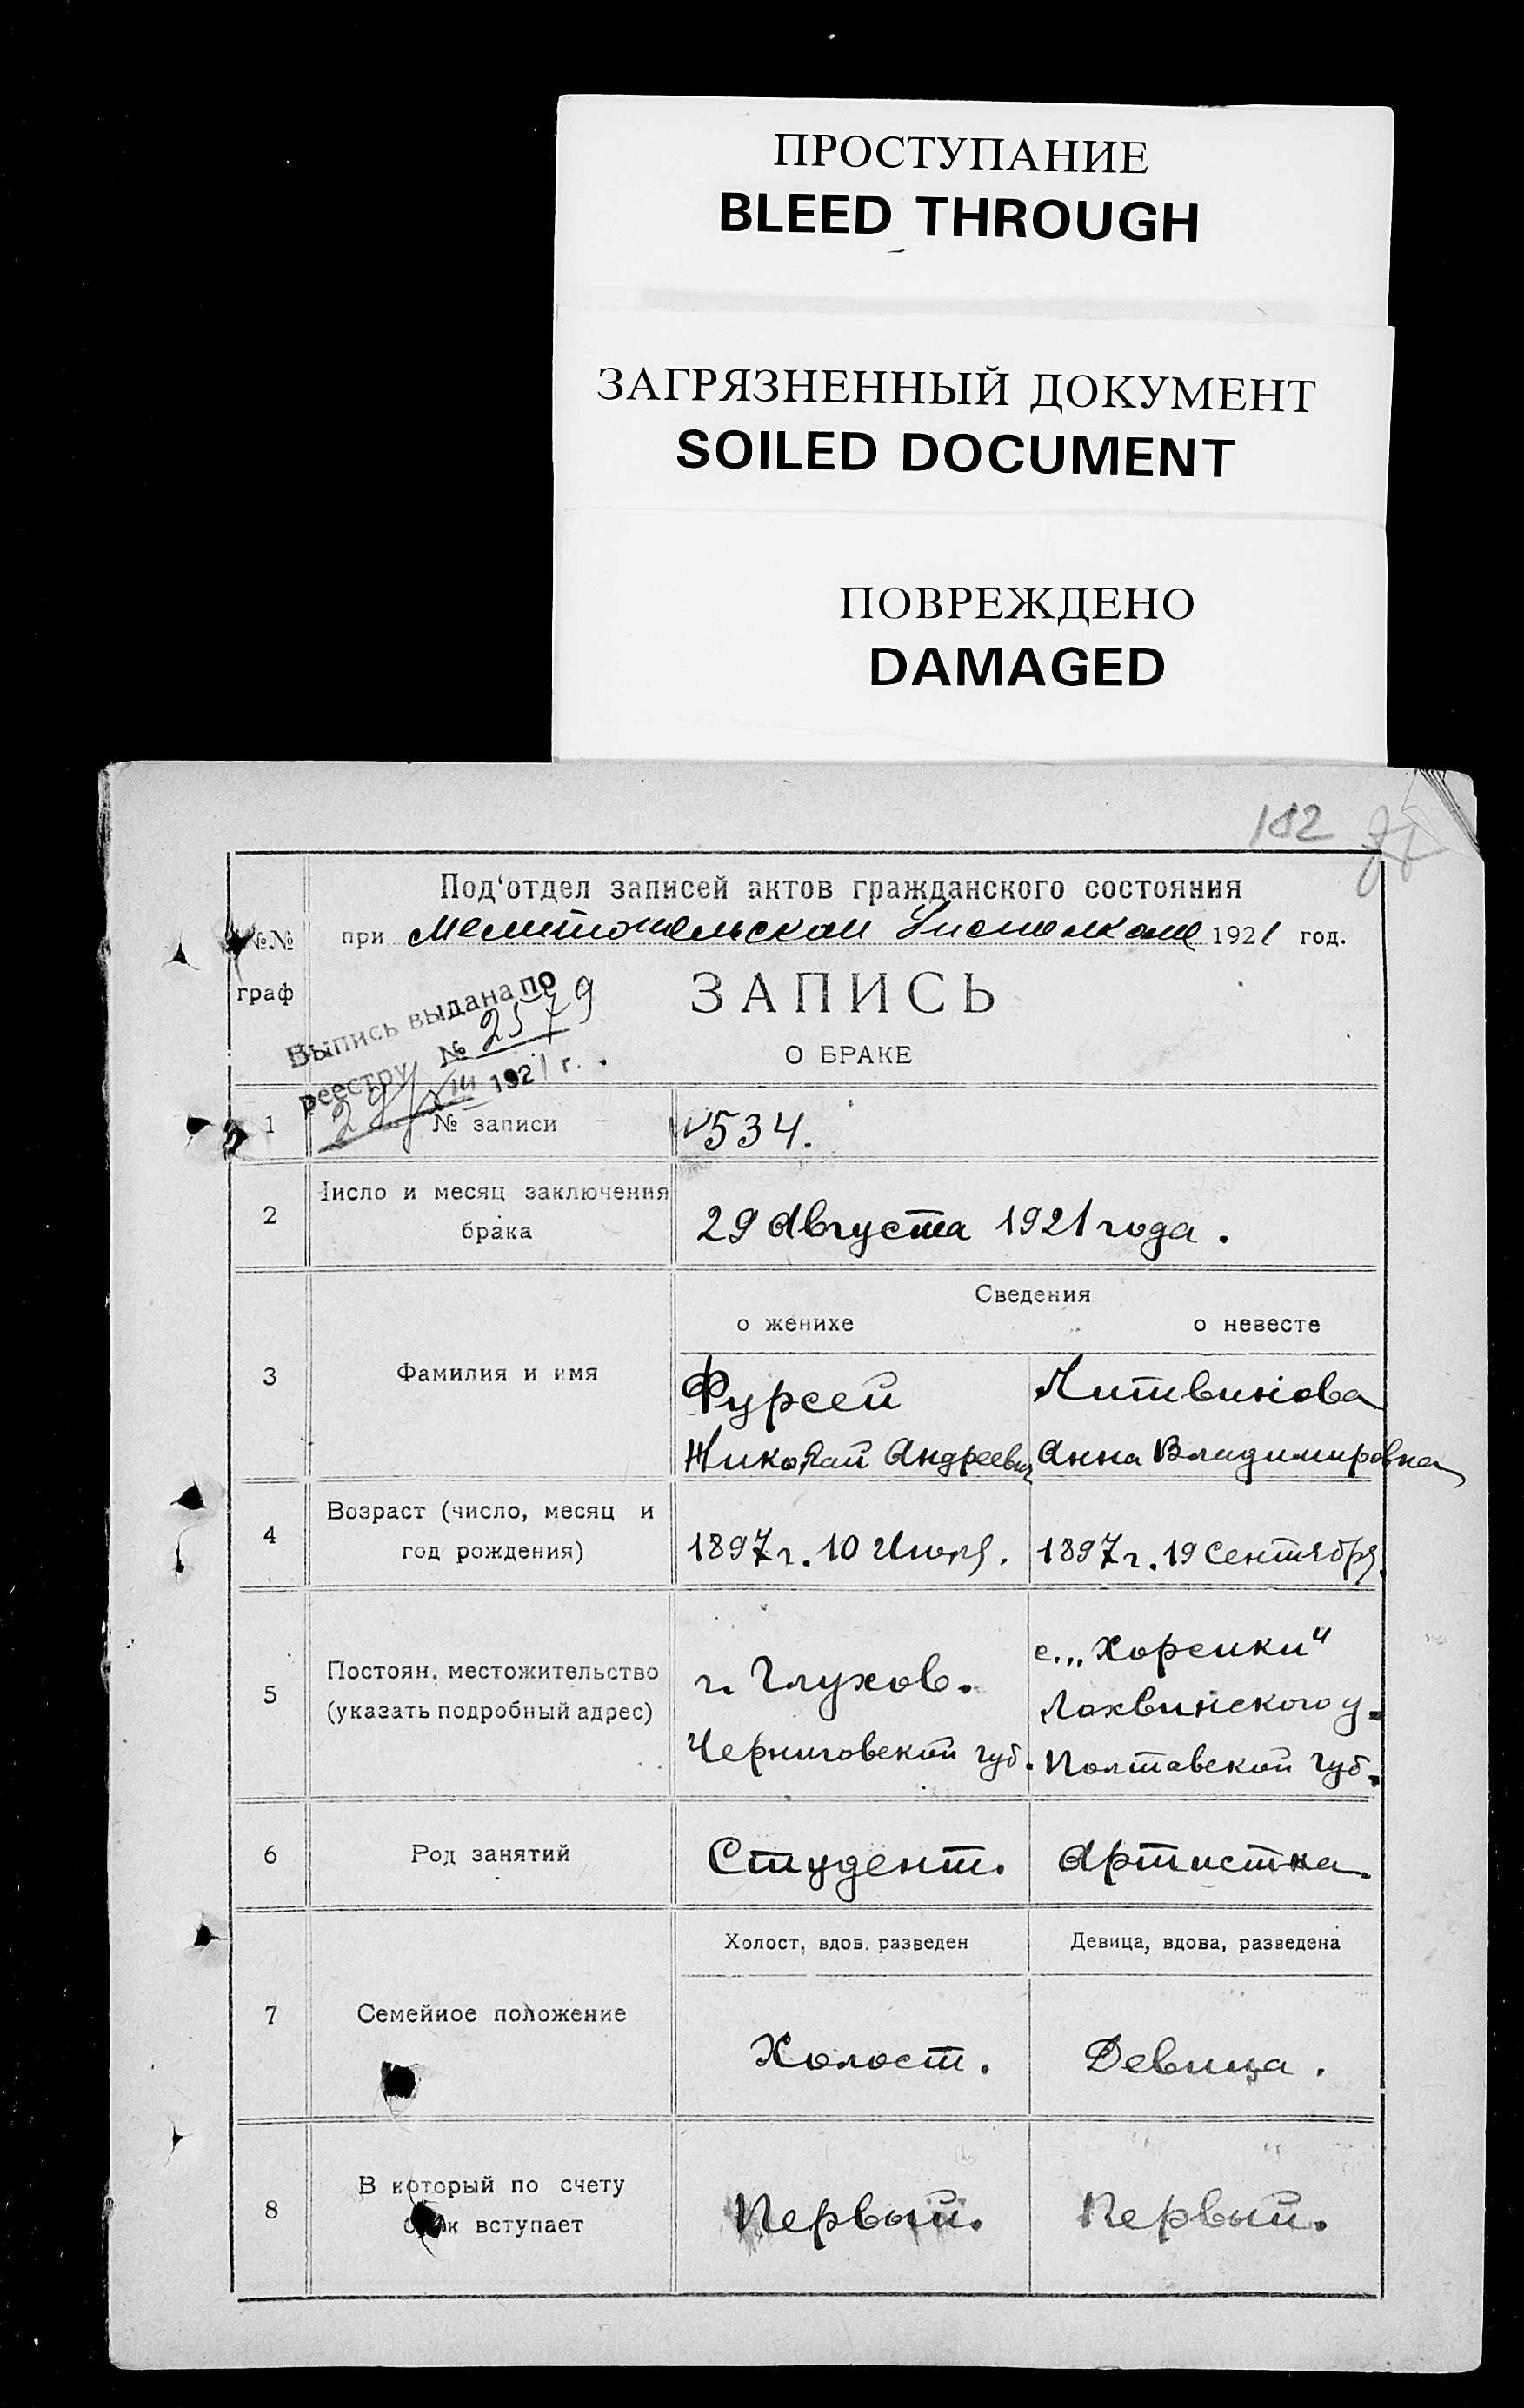 ПРОСТУПАНИЕ
BLEED THROUGH
ЗАГРЯЗНЕННЫЙ ДОКУМЕНТ
SOILED DOCUMENT
ПОВРЕЖДЕНО
DAMAGED
Под‘отдел записей актов гражданского состояния
№№ граф
при Мелитопольском 1921 год.
ЗАПИСЬ
О БРАКЕ
Выпись выдана по
реестру № 2579
29/VIII 1921 г.
1 № записи 534.
2 Число и месяц заключения
брака
29 Августа 1921 года.
Сведения
о женихе о невесте
3 Фамилия и имя
Фурсей Литвинова
Николай Андреевич Анна Владимировна
4 Возраст (число, месяц и
год рождения)
1897 г. 10 1897 г. 19 Сентября.
5 Постоян. местожительство
(указать подробный адрес)
г. Глухов.
Черниговской губ.
с. „Хорошки“
Лохвинского у.
Полтавской губ.
6 Род занятий Студент. Артистка.
Холост, вдов. разведен Девица, вдова, разведена
7 Семейное положение Холост. Девица.
8 В который по счету
брак вступает
Первый. Первый.